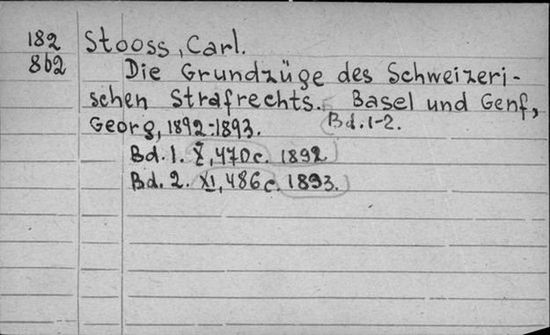 182 Stooss, Carl.
862 Die Grundzüge des Schweizeri-
schen Strafrechts. Basel und Genf,
Georg, 1892-1893. Bd. 1-2.
Bd. 1. X, 470 c. 1892
Bd. 2. XI, 486 c. 1893.